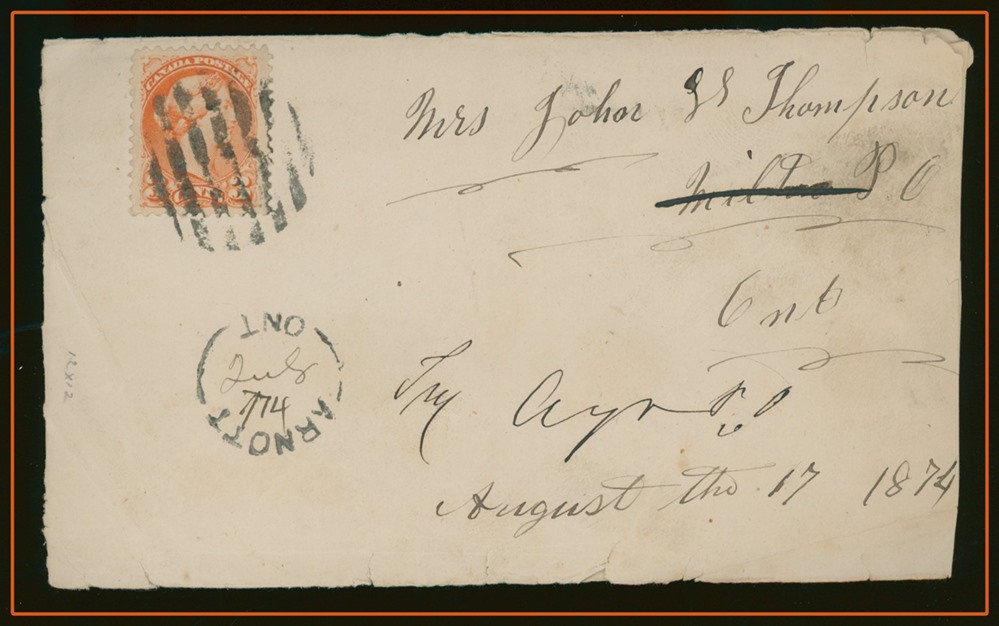 CANADA POSTAGE
3 CENTS 3
Mrs John Thompson
Milton P O
Ont
Try Ayr P.O
August the 17 1874
ARNOTT ONT
July
7/74
12x12